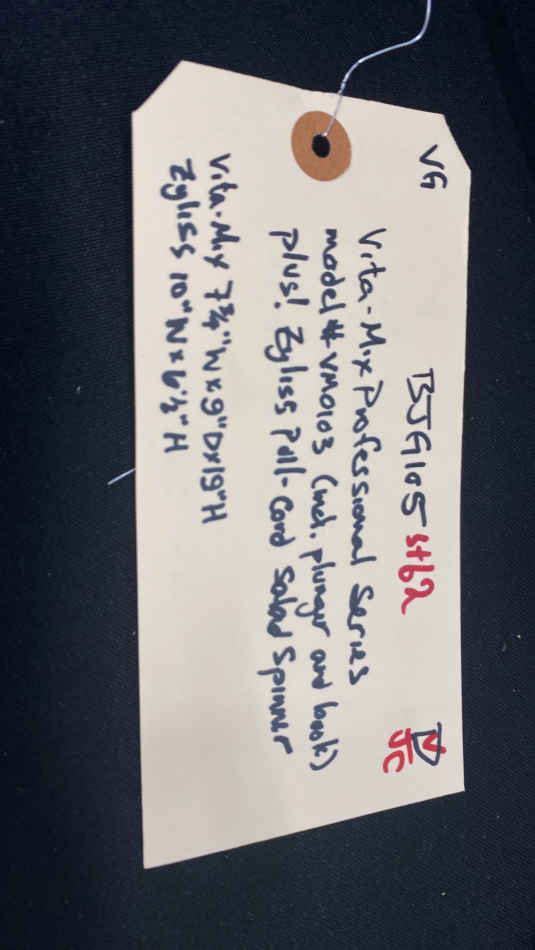 VG
BJG105 st62
D
JC
Vita-Mix Professional Series
model # VM0103 (incl. plunger and book)
plus! Zyliss Pull-Cord Salad Spinner
Vita-Mix 7¾"W x 9"D x 19"H
Zyliss 10"W x 6½"H